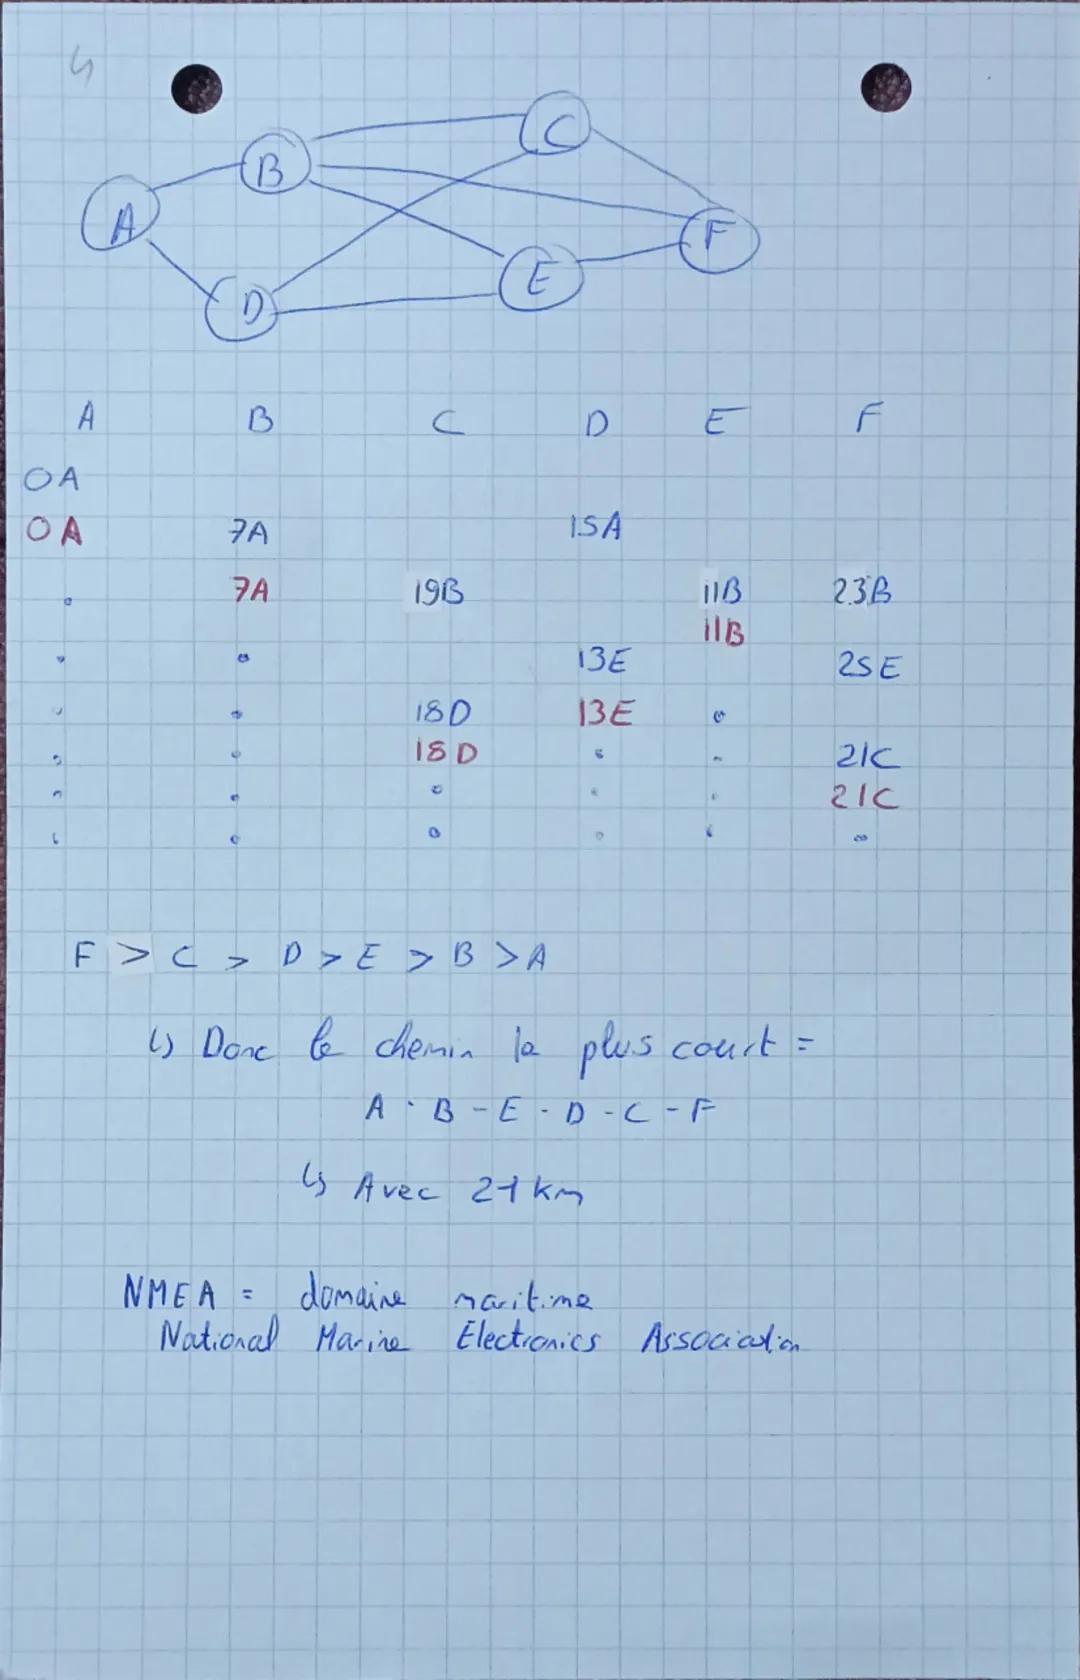 4
A B C D E F
A B C D E F
0A
0A 7A 15A
7A 19B 11B 23B
11B
13E 25E
18D 13E
18D 21C
21C
F > C > D > E > B > A
↳ Donc le chemin la plus court =
A - B - E - D - C - F
↳ Avec 21 km
NMEA = domaine maritime
National Marine Electronics Association